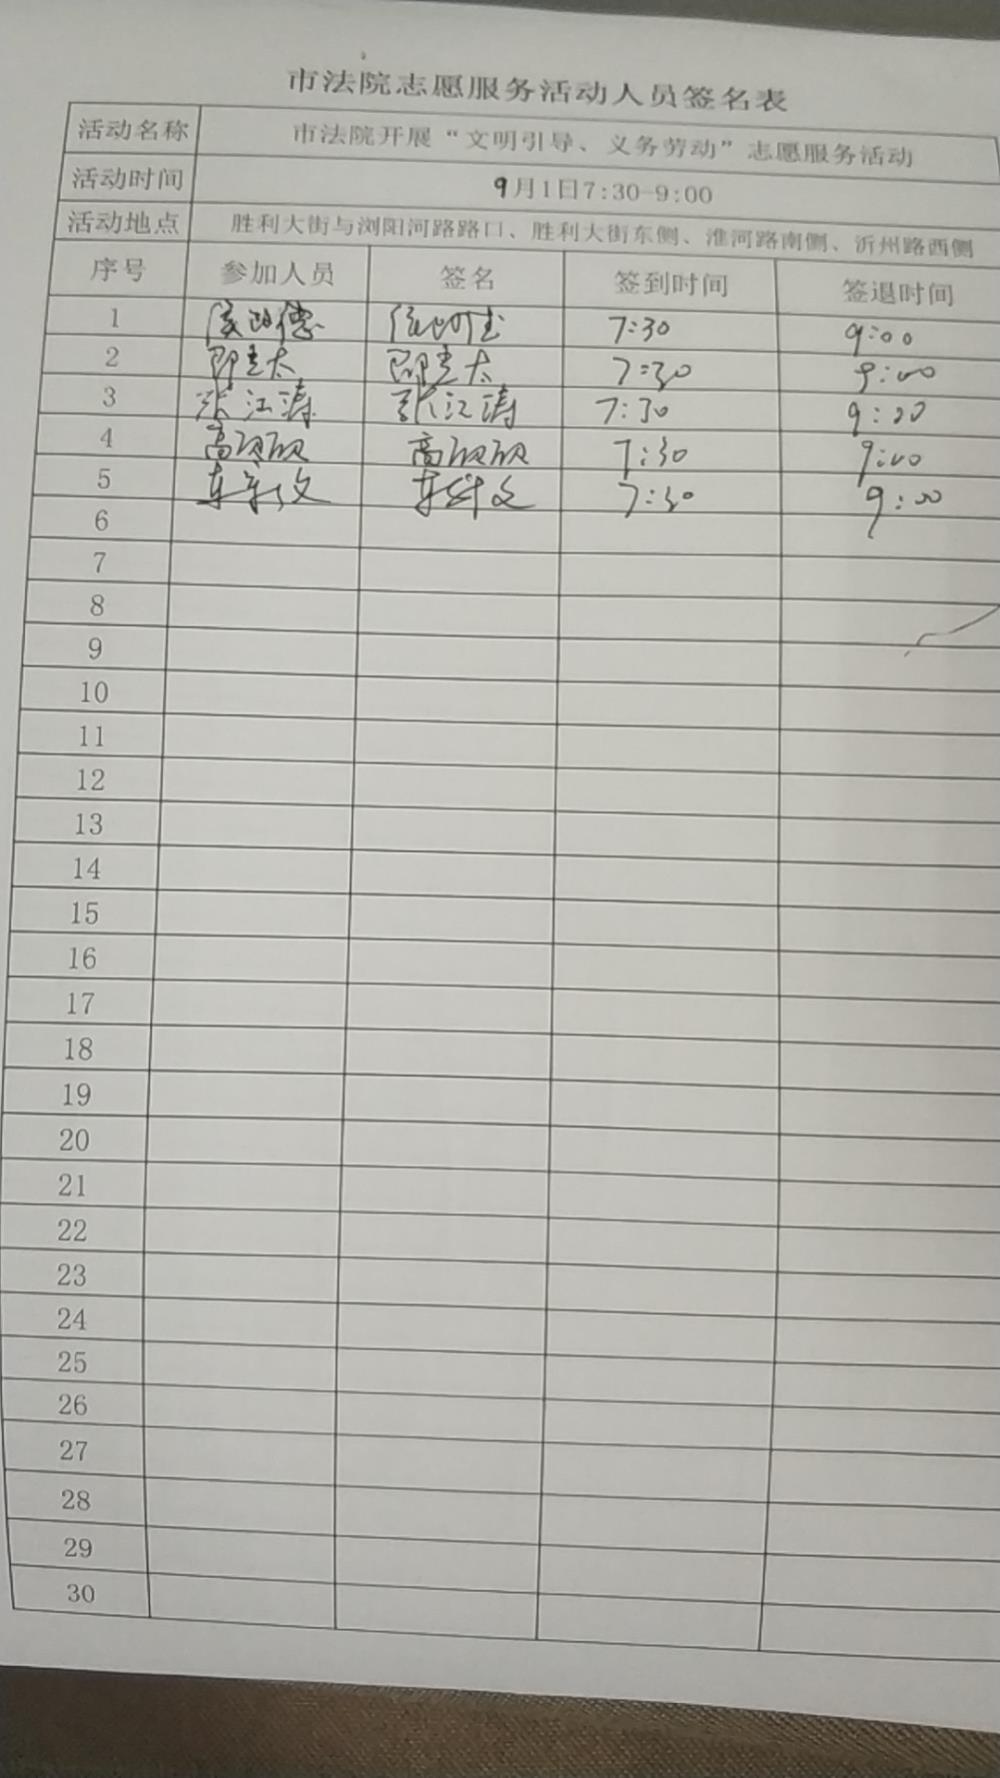 市法院志愿服务活动人员签名表
活动名称 市法院开展“文明引导、义务劳动”志愿服务活动
活动时间 9月1日7:30-9:00
活动地点 胜利大街与浏阳河路路口、胜利大街东侧、淮河路南侧、沂州路西侧
序号 参加人员 签名 签到时间 签退时间
1 7:30 9:00
2 7:30 9:00
3 张江涛 张江涛 7:30 9:00
4 7:30 9:00
5 7:30 9:00
6
7
8
9
10
11
12
13
14
15
16
17
18
19
20
21
22
23
24
25
26
27
28
29
30